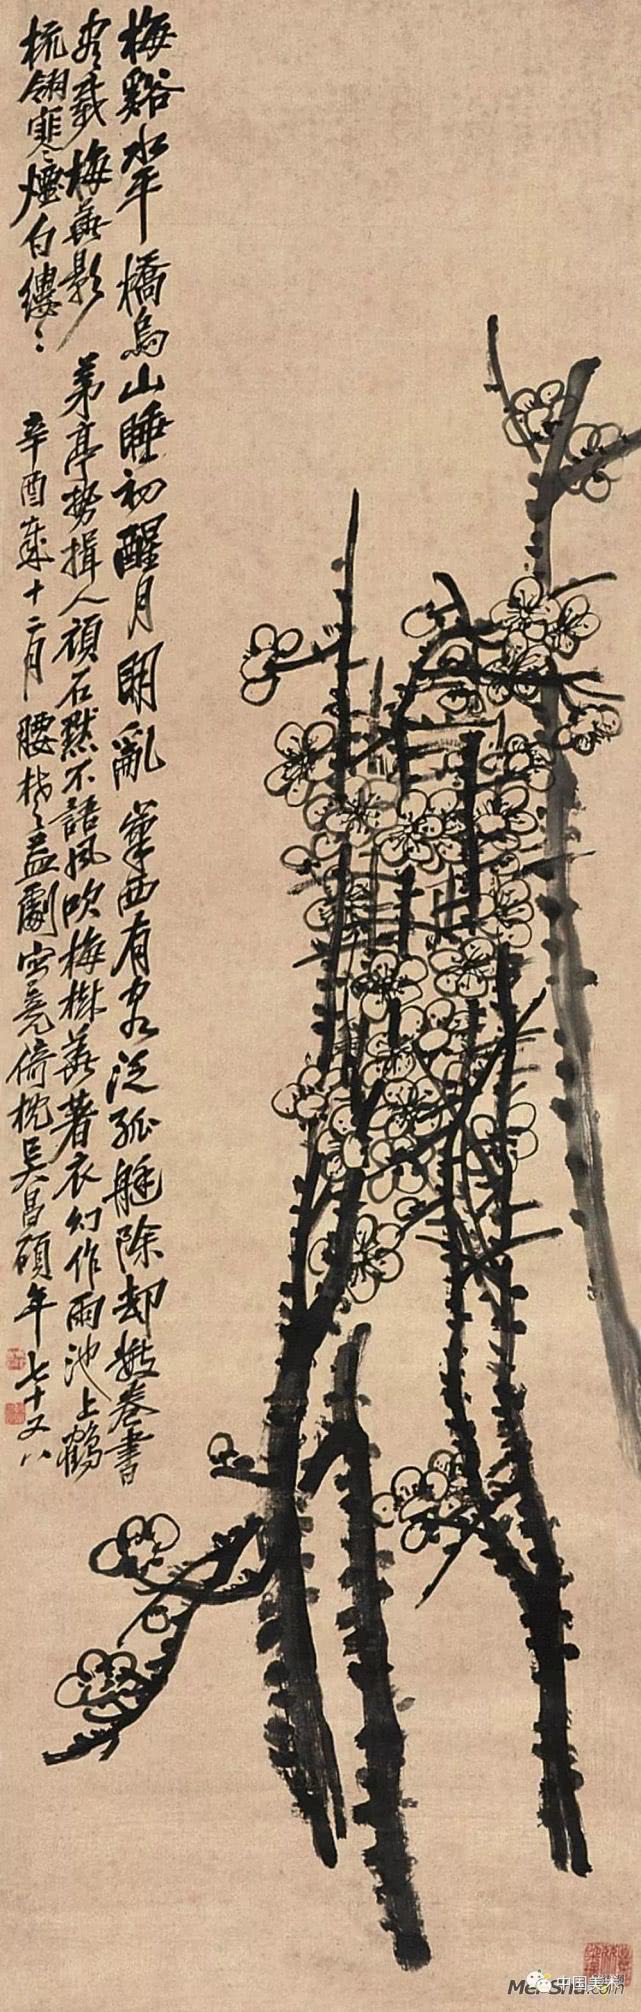 梅谿水平橋烏山睡初醒月明亂峯西有客泛孤艇除却數卷書
盡載梅華影 茅亭勢揖人頑石默不語風吹梅樹華著衣幻作雨池上鶴
梳翎寒煙白縷〻 辛酉歲十二月腰楚益劇倚枕吳昌碩年七十又八
中国美术